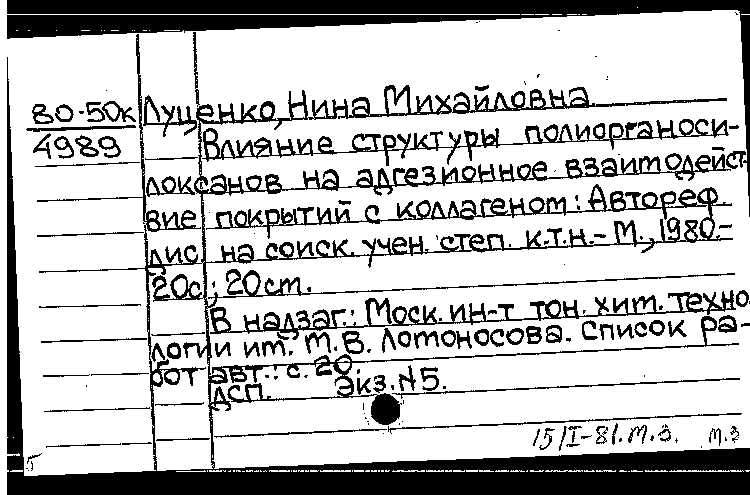 80-50к Луценко, Нина Михайловна
4989 Влияние структуры полиорганоси-
локсанов на адгезионное взаимодейст-
вие покрытий с коллагеном: Автореф.
дис. на соиск. учен. степ. к.т.н. - М., 1980.-
20с.; 20см.
В надзаг.: Моск. ин-т тон. хим. техно-
логии им. М.В. Ломоносова. Список ра-
бот авт.: с. 20.
ДСП. Экз. N5.
15/I-81. М.З. м.з
5